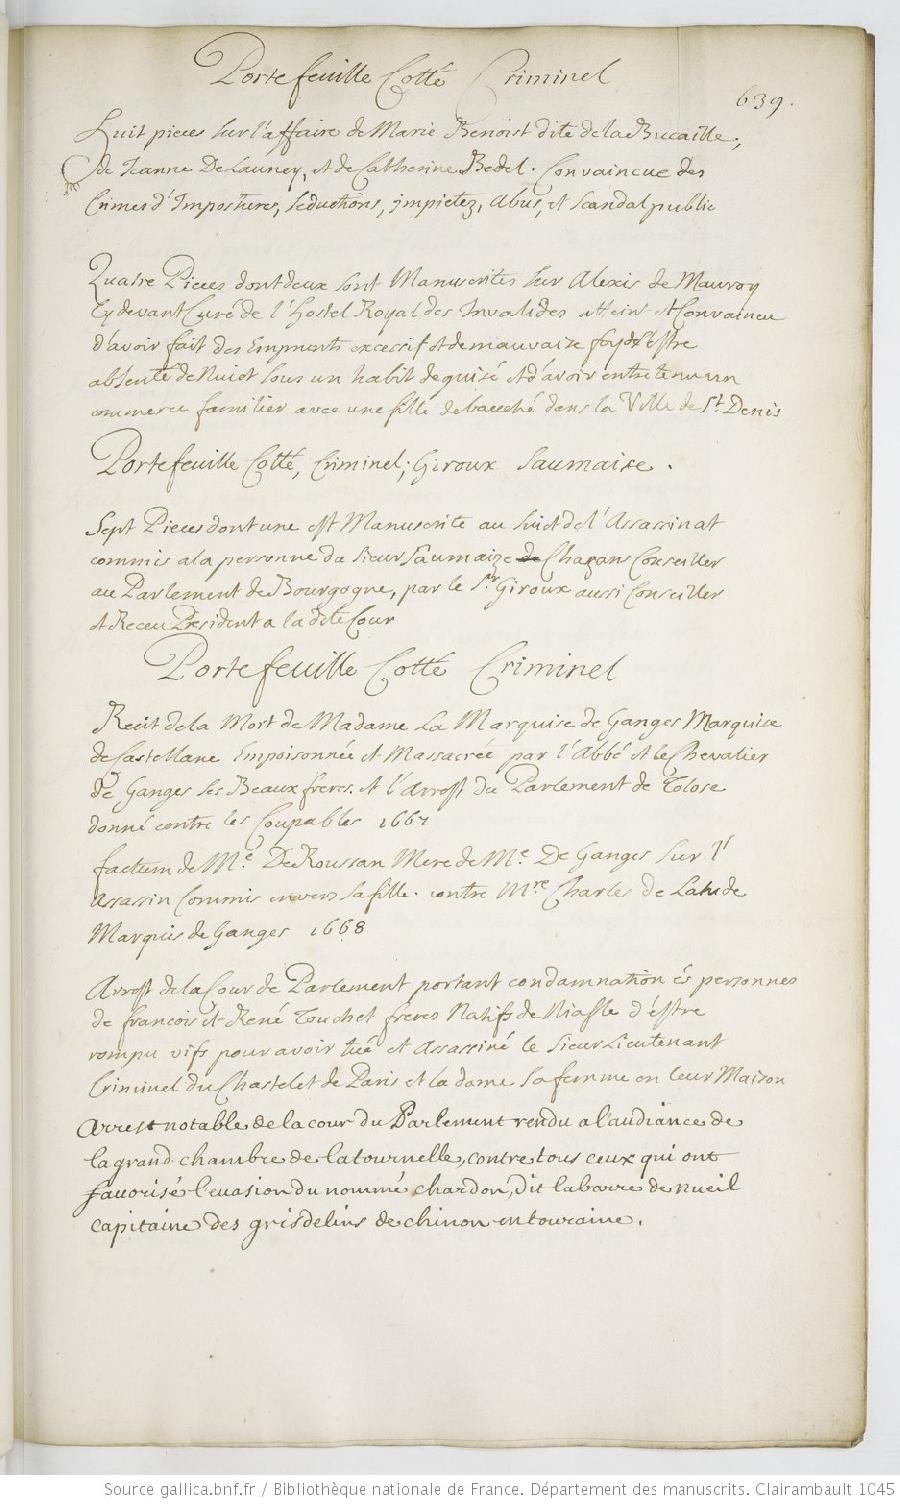 Portefeuille Cotté Criminel
639.
Huit pieces sur l'affaire de Marie Benoist dite de la Bucaille,
de Jeanne De Launey, et de Catherine Bedel. Convaincue des
Crimes d'Impostures, seductions, jmpietez, Abus, et scandal public
Quatre Pieces dont deux sont Manuscrites sur Alexis de Mauroy
Cy devant Curé de l'Hostel Royal des Invalides atteint et Convaincu
d'avoir fait des Emprunts excessif et de mauvaise foy d'estre
absenté de Nuict sous un habit deguisé et d'avoir entretenu un
commerce familier avec une fille debauché dans la Ville de St. Denis
Portefeuille Cotté, Criminel, Giroux Saumaise.
Sept Pieces dont une est Manuscrite au suiet de l'Assassinat
commis a la personne du sieur Saumaize de Chaçans Conseiller
au Parlement de Bourgogne, par le Sr. Giroux aussi Conseiller
et Receu President a la dite Cour
Portefeuille Cotté Criminel
Recit de la Mort de Madame La Marquise de Ganges Marquise
de Castellane Empoisonnée et Massacrée par l'Abbé et le Chevalier
de Ganges ses Beaux freres. et l'Arrest du Parlement de Tolose
donné contre les Coupables 1667
factum de Me. De Roussan Mere de Me. De Ganges sur l'
assassin Commis envers sa fille. contre Mre. Charles de Latude
Marquis de Ganges 1668
Arrest de la Cour de Parlement portant condamnation és personnes
de francois et René Touchet freres Natifs de Niafle d'estre
rompu vifs pour avoir tué et assassiné le sieur Lieutenant
Criminel du Chastelet de Paris et la dame sa femme en leur Maison
arrest notable de la cour du Parlement rendu a l'audiance de
la grand chambre de la tournelle, contre tous ceux qui ont
favorisé l'evasion du nommé chardon, dit la barre de nueil
capitaine des grisdelins de chinon en touraine.
Source gallica.bnf.fr / Bibliothèque nationale de France. Département des manuscrits. Clairambault 1045